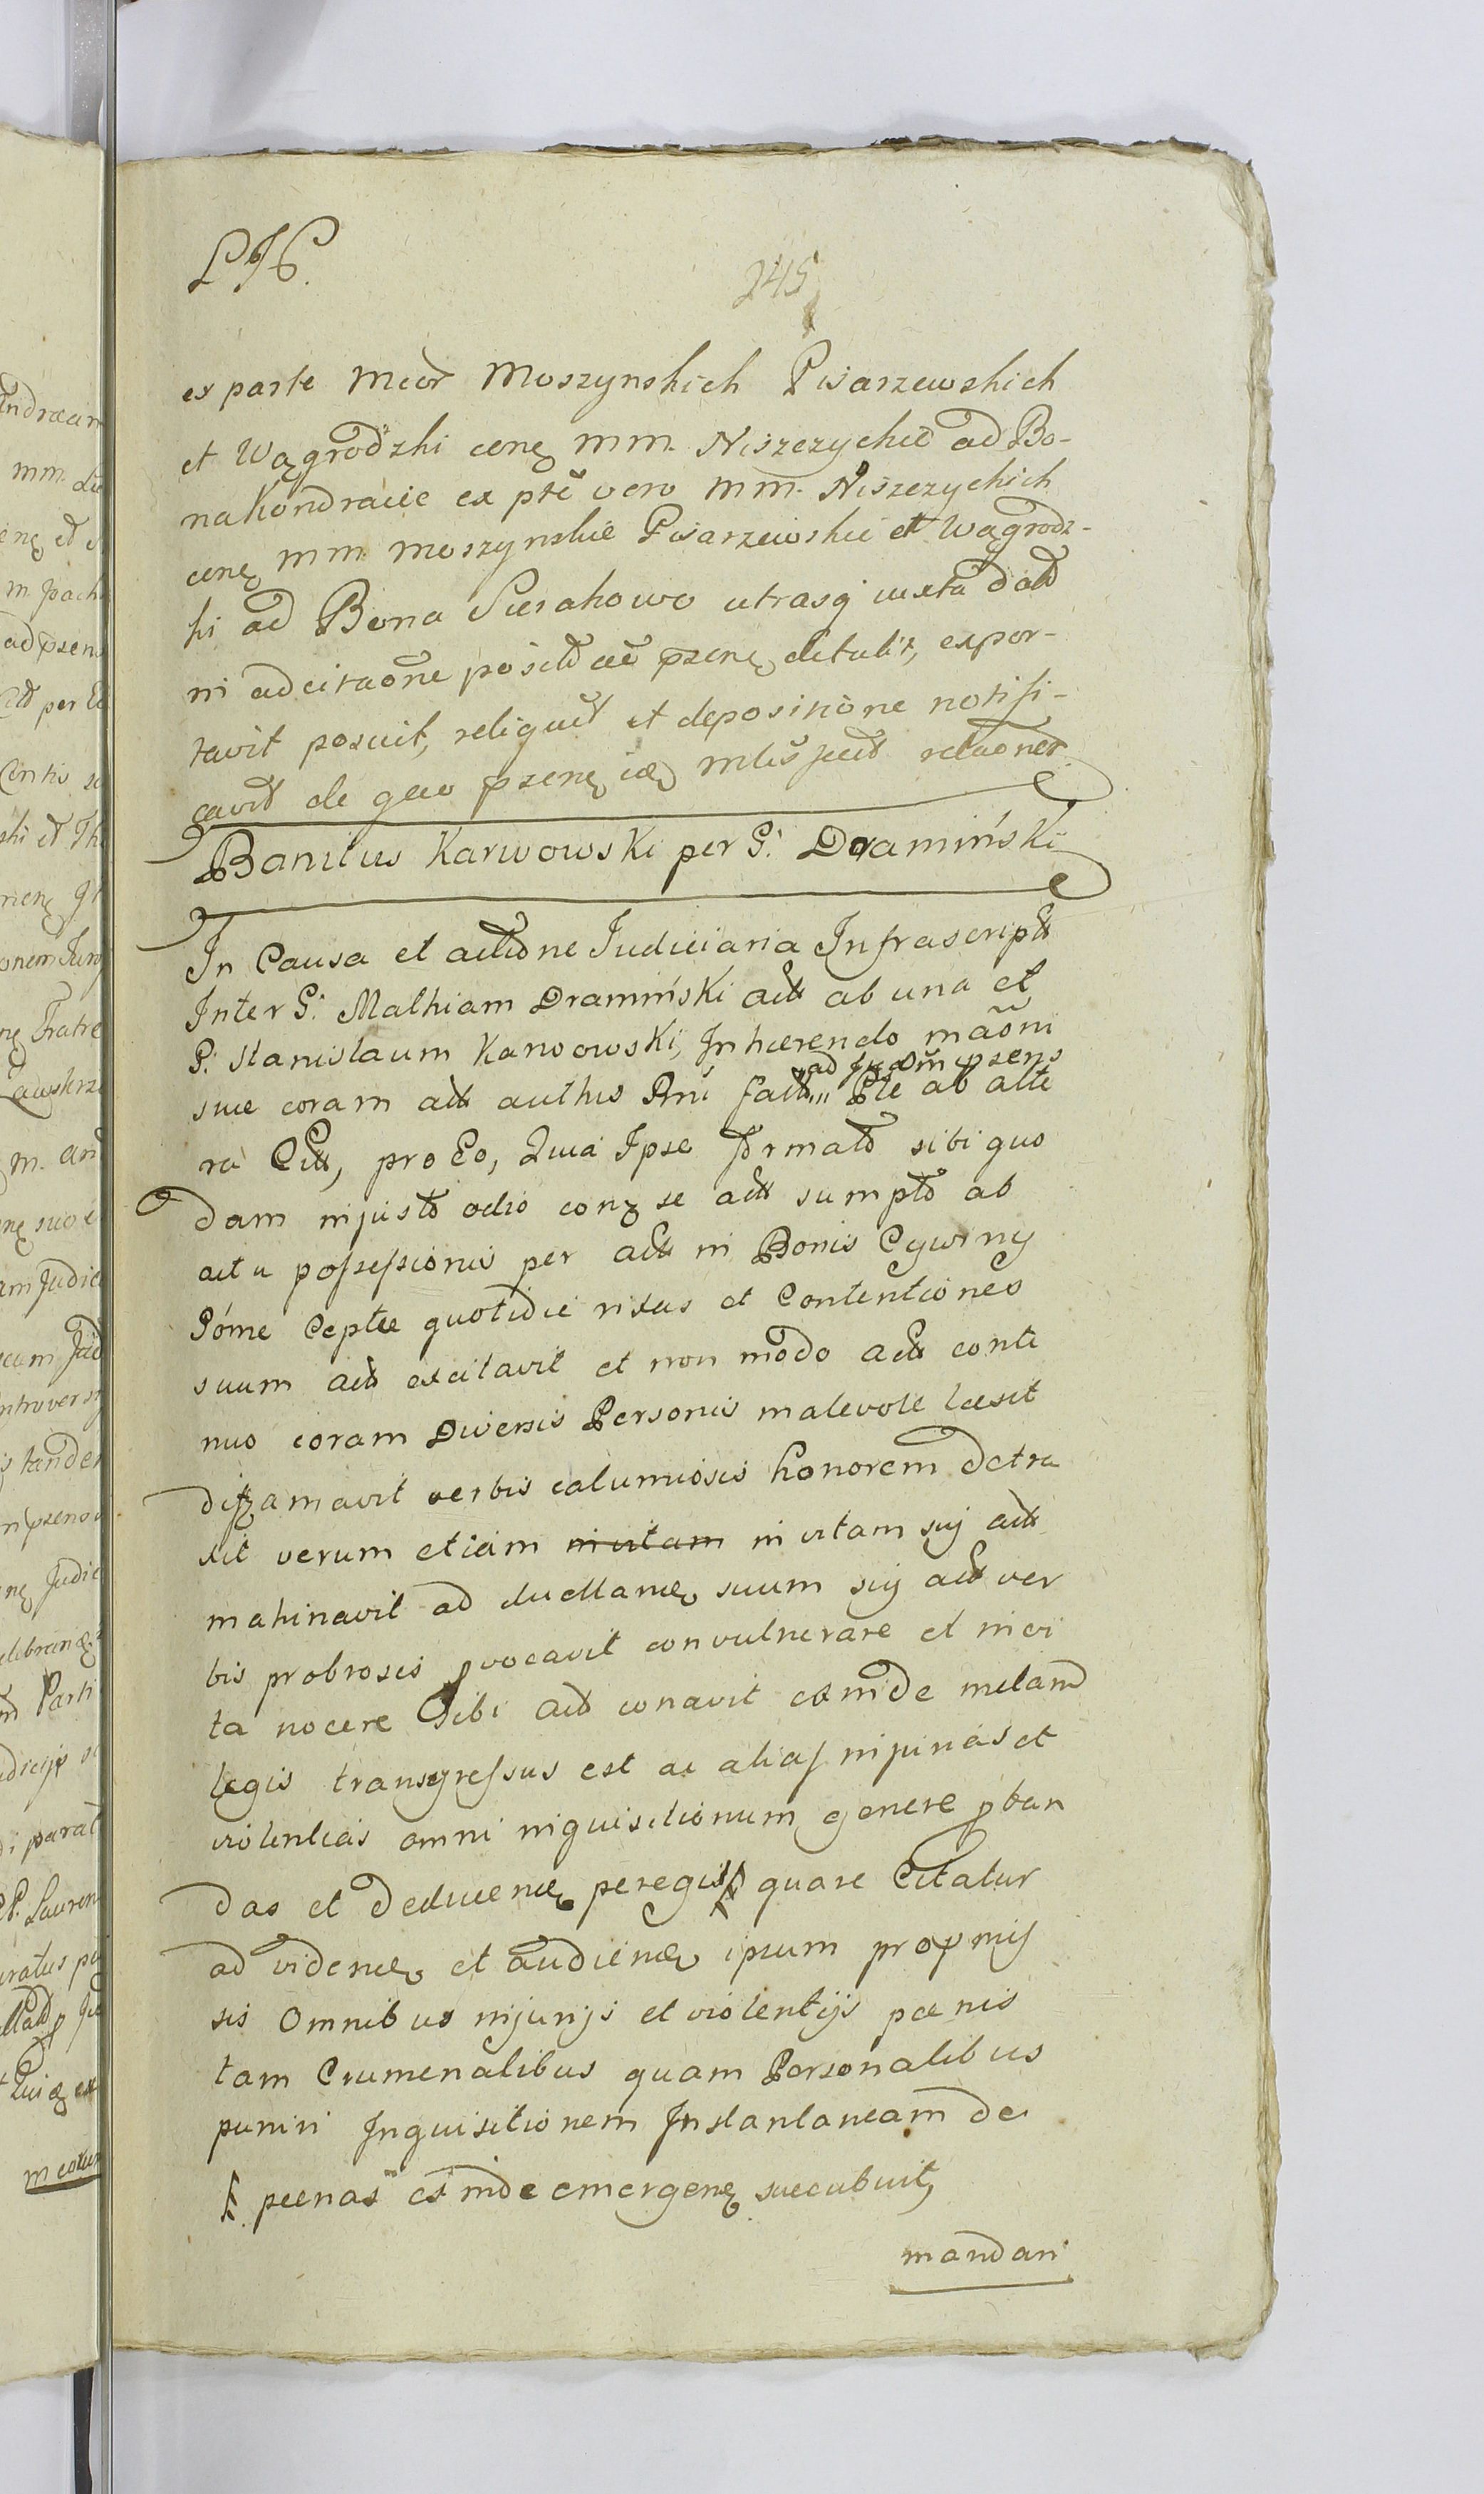 245
ex parte Mcor Moszynskich Pisarzewskich
et Wągrodzki conę mm. Niszczyckie ad Bo-
na Kondraiec ex pte vero mm. Niszczyckich
conę mm. Moszynskie Pisarzewskie et Wągrodz-
ki ad Bona Sierakowo utrasq iuxta dat
in adcitaone posit ac pzenę detulit, expor-
tavit posuit, reliquit et depositione notifi-
cavit de quo pzenę Mlis fecit relaonem
Banitus Karwowski per G: Dramiński
In Causa et actione Judiciaria Infrascript
Inter G: Mathiam Dramiński act ab una et
P: Stanislaum Karwowski, Inhærendo maoni
suæ coram act authis Pni fact ad pzens Pte ab alte
ra Cit, pro Eo, Quia Ipse format sibi quo
dam injusto odio conz se act sumpto ab
actu possessionis per act in Bonis Cywiny
Pome Ceptæ quotidie rixas et Contentiones
suum act excitavit et non modo act conti
nuo coram Diversis Personis malevole læsit
diffamavit verbis calumiosis honorem detra
xit verum etiam in vitam in vitam sui act
mahinavit ad duellandę suum sui act ver
bis probrosis pvocavit convulnerare et in vi
ta nocere Sibi act conavit exinde metam
legis transgressus est ac alias injurias et
violentias omni inquisitionum genere pban
das et Deducendę peregit quare Citatur
ad videndę et audiendę ipsum pro pmis
sis Omnibus injurijs et violentijs pœnis
tam Crumenalibus quam Personalibus
puniri Inquisitionem Instantaneam de
pœnas exinde emergenę succubuit,
mandari